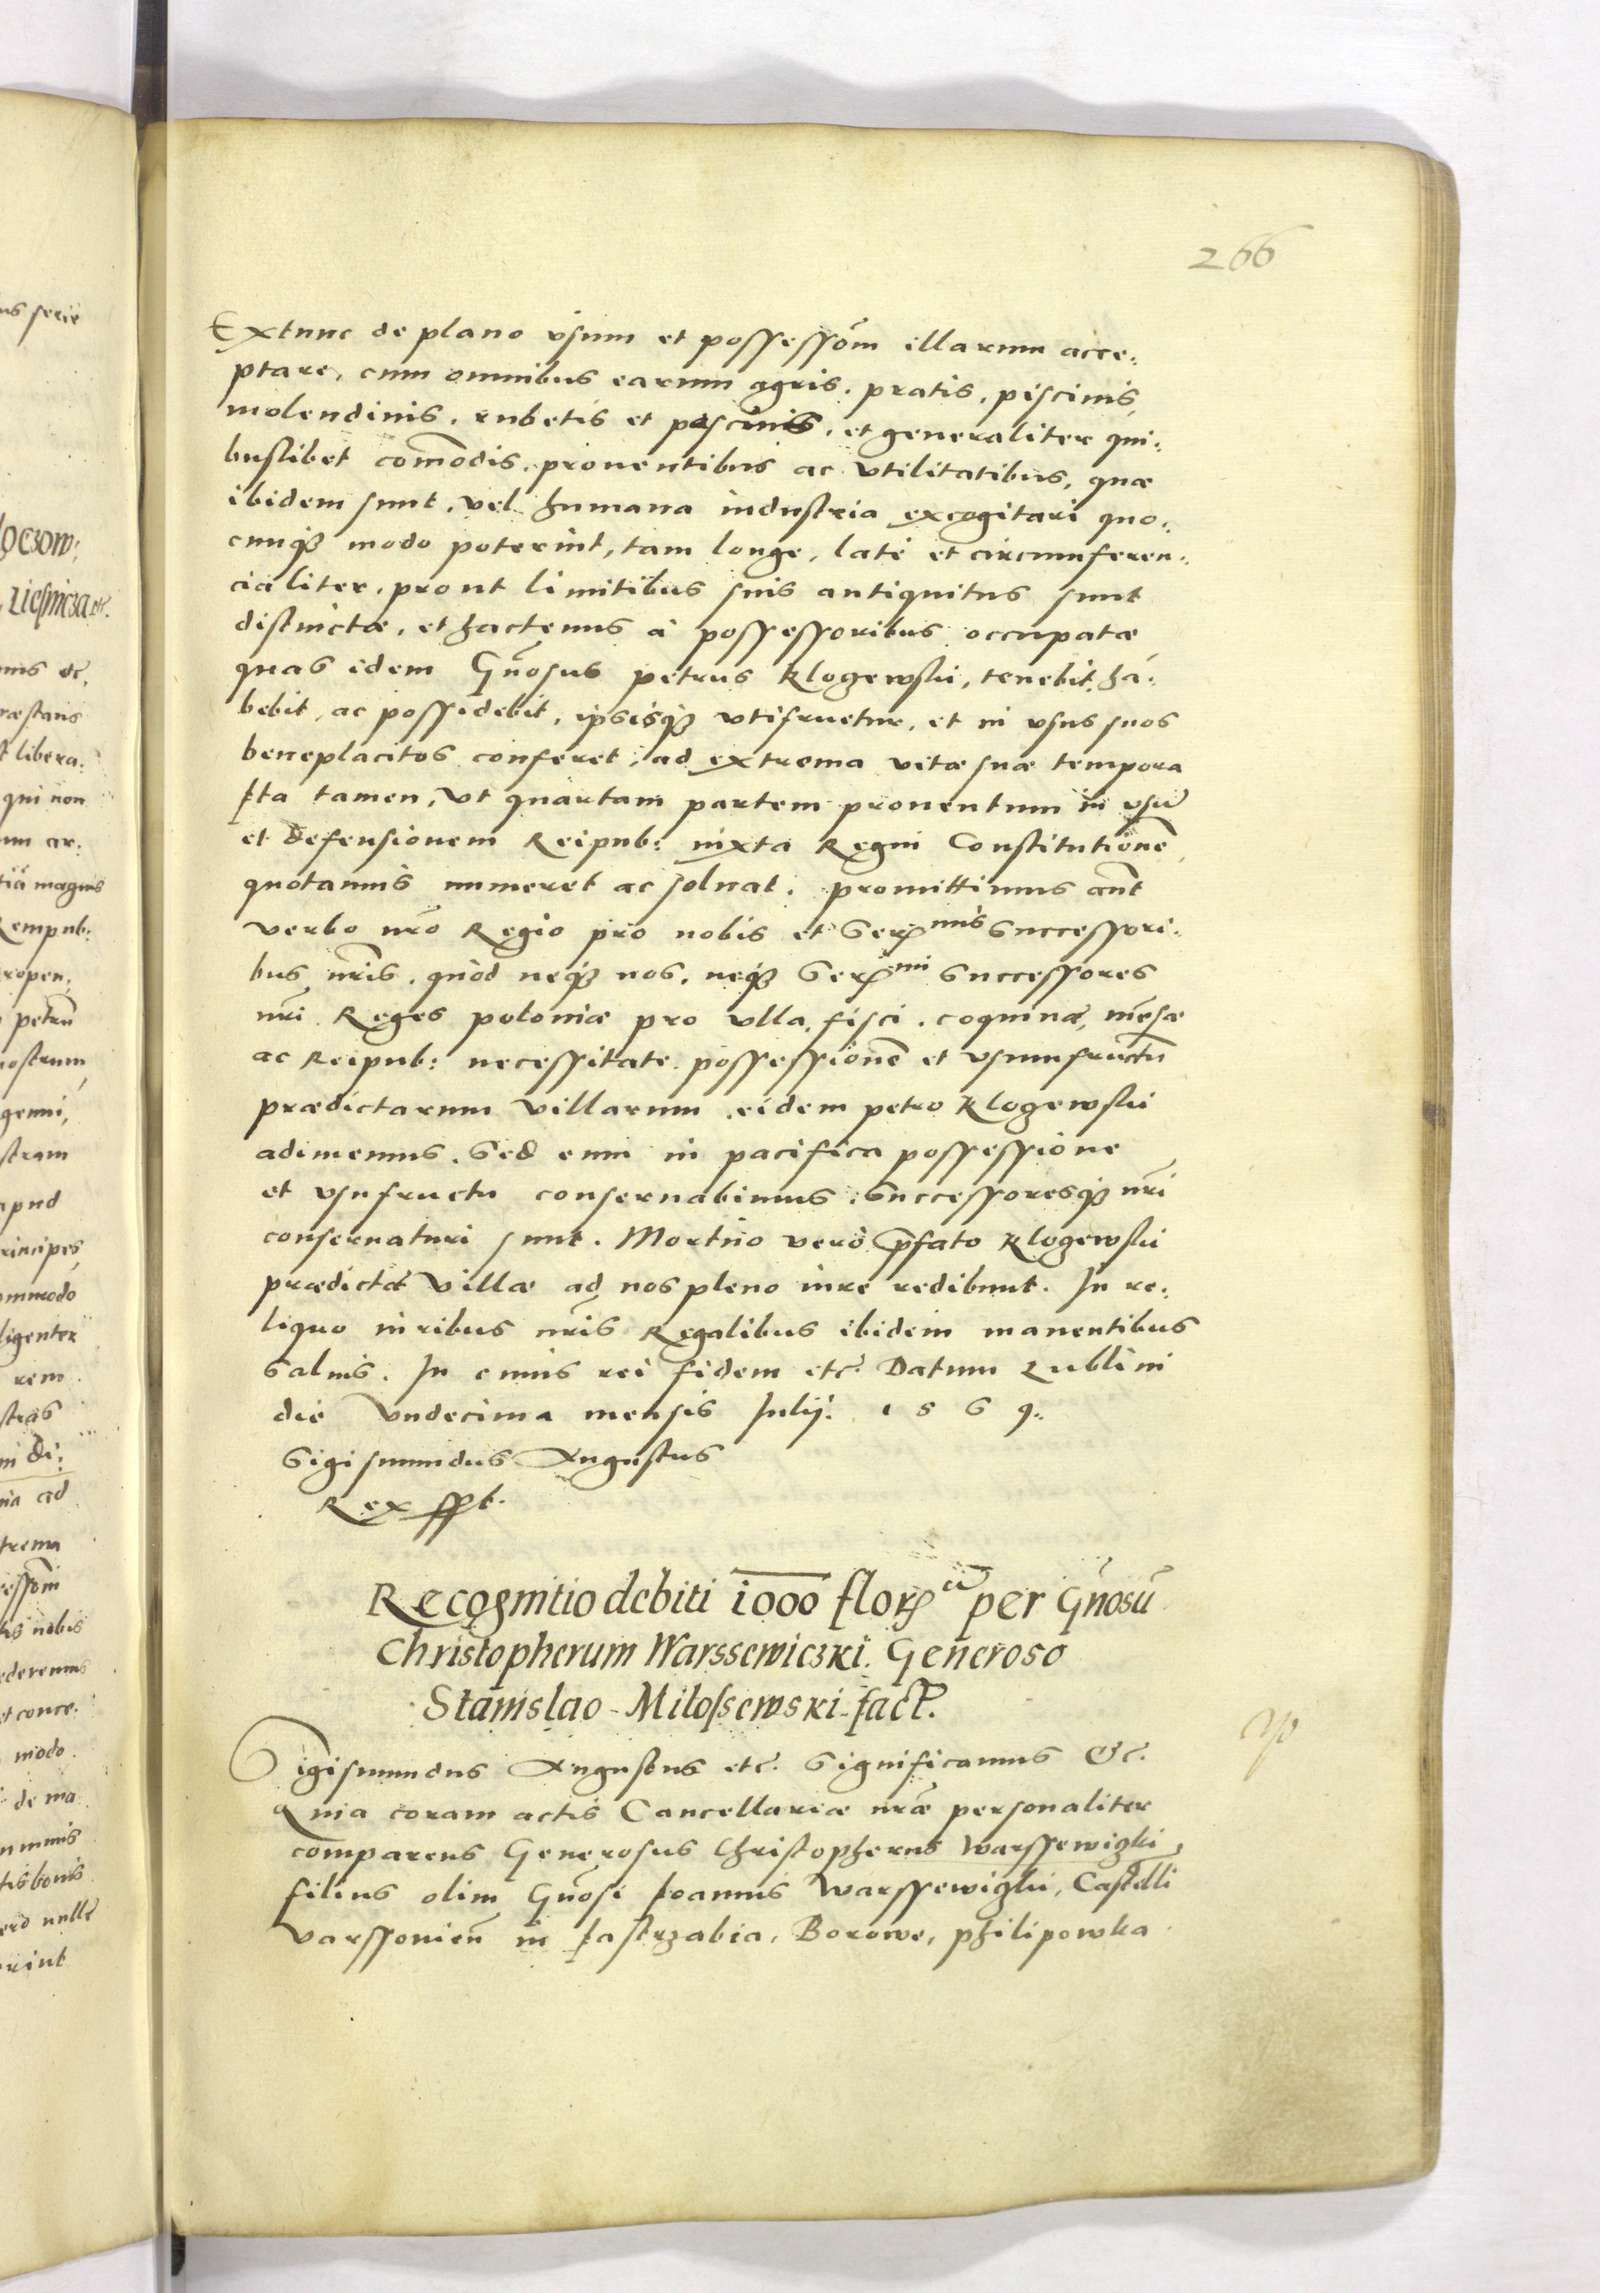 266
Extunc de plano vsum et possessõm illarum acce:
ptare, cum omnibus earum agris, pratis, piscinis,
molendinis, rubetis et pascuis, et generaliter qui:
buslibet com̃odis, prouentibus ac vtilitatibus, quæ
ibidem sunt, vel humana industria excogitari quo:
cunq3 modo poterint, tam longe, late et circumferen:
cialiter, prout limitibus suis antiquitus sunt
distinctæ, et hactenus à possessoribus occupatæ
quas idem Gñosus petrus Klogewski, tenebit, ha:
bebit, ac possidebit, ipsisq3 vtifruetur, et in vsus suos
beneplacitos conferet, ad extrema vitæ suæ tempora
Ita tamen, vt quartam partem prouentuum in vsũ
et defensionem Reipub: iuxta Regni Constitutionẽ,
quotannis numeret ac soluat. promittimus aũt
verbo nr̃o Regio pro nobis et Ser^mis Successori:
bus nr̃is, quòd neq3 nos, neq3 Ser^mi Successores
nr̃i Reges poloniæ pro vlla fisci, coquinæ, mẽsæ
ac Reipub: necessitate possessionẽ et vsumfructũ
prædictarum villarum eidem petro Klogewski
adimemus. Sed eum in pacifica possessione
et vsufructu conseruabimus, Successoresq3 nr̃i
conseruaturi sunt. Mortuo verò p̃fato Klogewski
prædictæ villæ ad nos pleno iure redibunt. In re:
liquo iuribus nr̃is Regalibus ibidem manentibus
Saluis. In cuius rei fidem etc̃. Datum Lublini
die vndecima mensis Iulij. 1569.
Sigismundus Augustus
Rex sspt.
Recognitio debiti 1000 flor^ẽ per Gñosũ
Christopherum Warssewiczki Generoso
Stanislao Milossewski fact.
Sigismundus Augustus etc̃. Significamus &c̃.
Quia coram actis Cancellariæ nr̃æ personaliter
comparens Generosus Christopherus Warssewizki,
filius olim Gñosi Ioannis Warssewizki, Castelli
varssouieñ in Jastrzabia, Borowe, philipowka